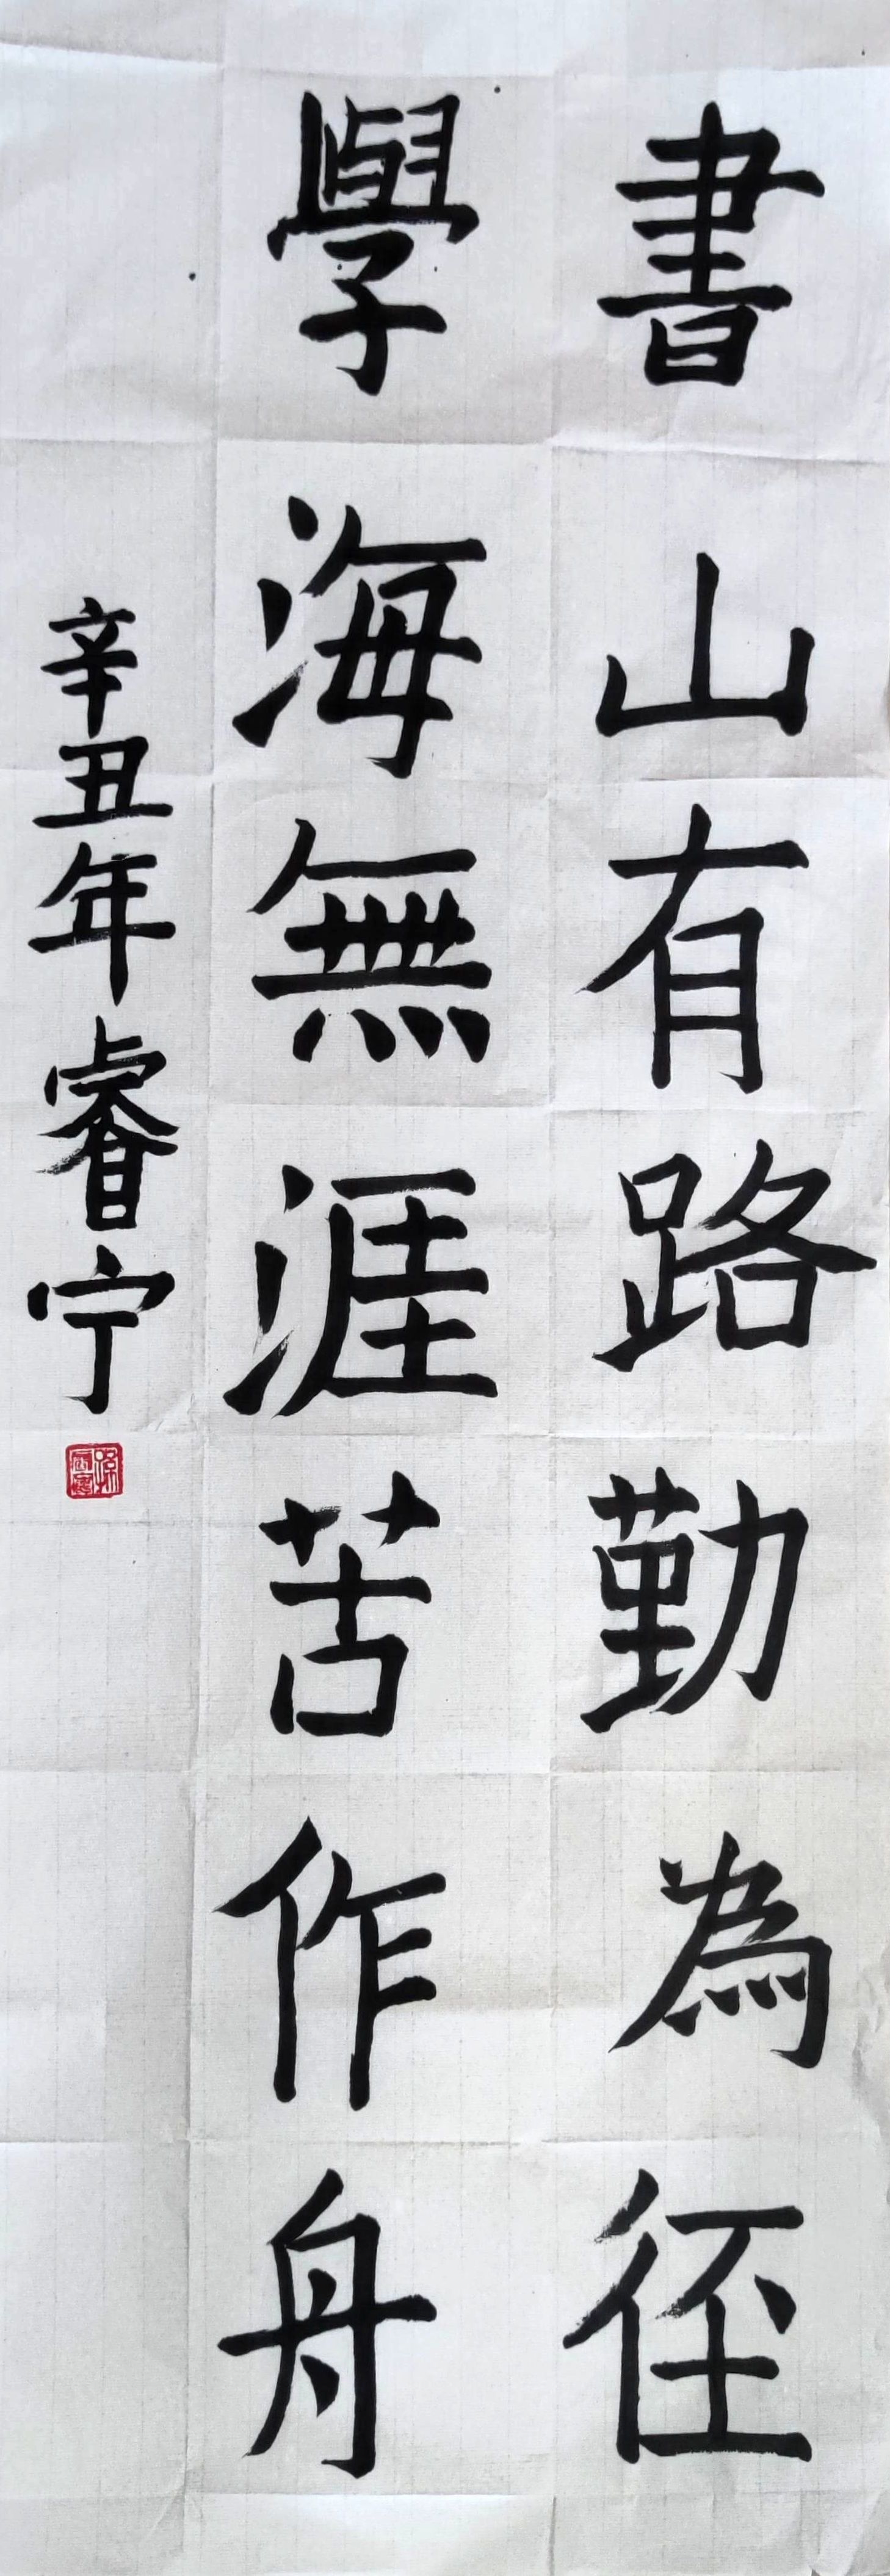 書山有路勤為徑
學海無涯苦作舟
辛丑年睿宁